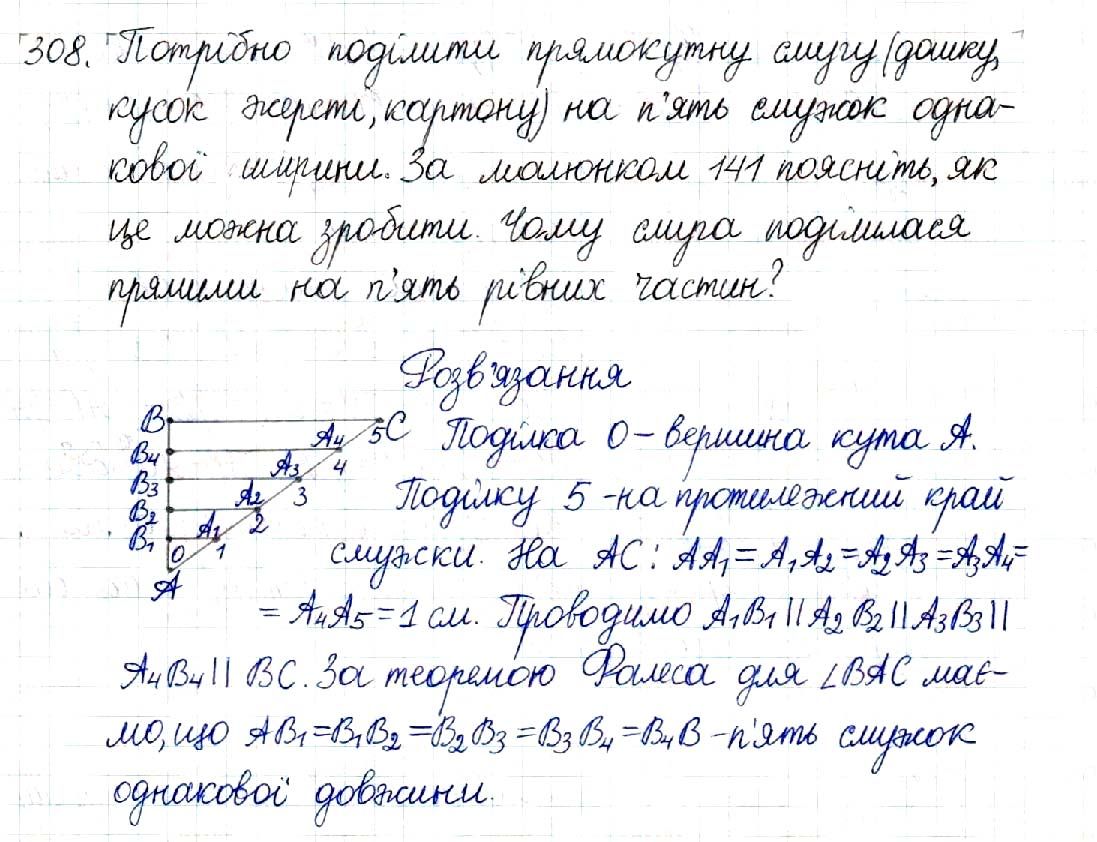 308. Потрібно поділити прямокутну смугу (дошку,
кусок жерсті, картону) на п'ять смужок одна-
кової ширини. За малюнком 141 поясніть, як
це можна зробити. Чому смуга поділилася
прямими на п'ять рівних частин?
Розв'язання
B 5 C
B4 A4 4
B3 A3 3
B2 A2 2
B1 O A1 1
A
Поділка 0 – вершина кута A.
Поділку 5 - на протилежний край
смужски. На AC: AA1 = A1A2 = A2A3 = A3A4 =
= A4A5 = 1 см. Проводимо A1B1 || A2B2 || A3B3 ||
A4B4 || BC. За теоремою Фалеса для ∠BAC має-
мо, що AB1 = B1B2 = B2B3 = B3B4 = B4B – п'ять смужок
однакової довжини.